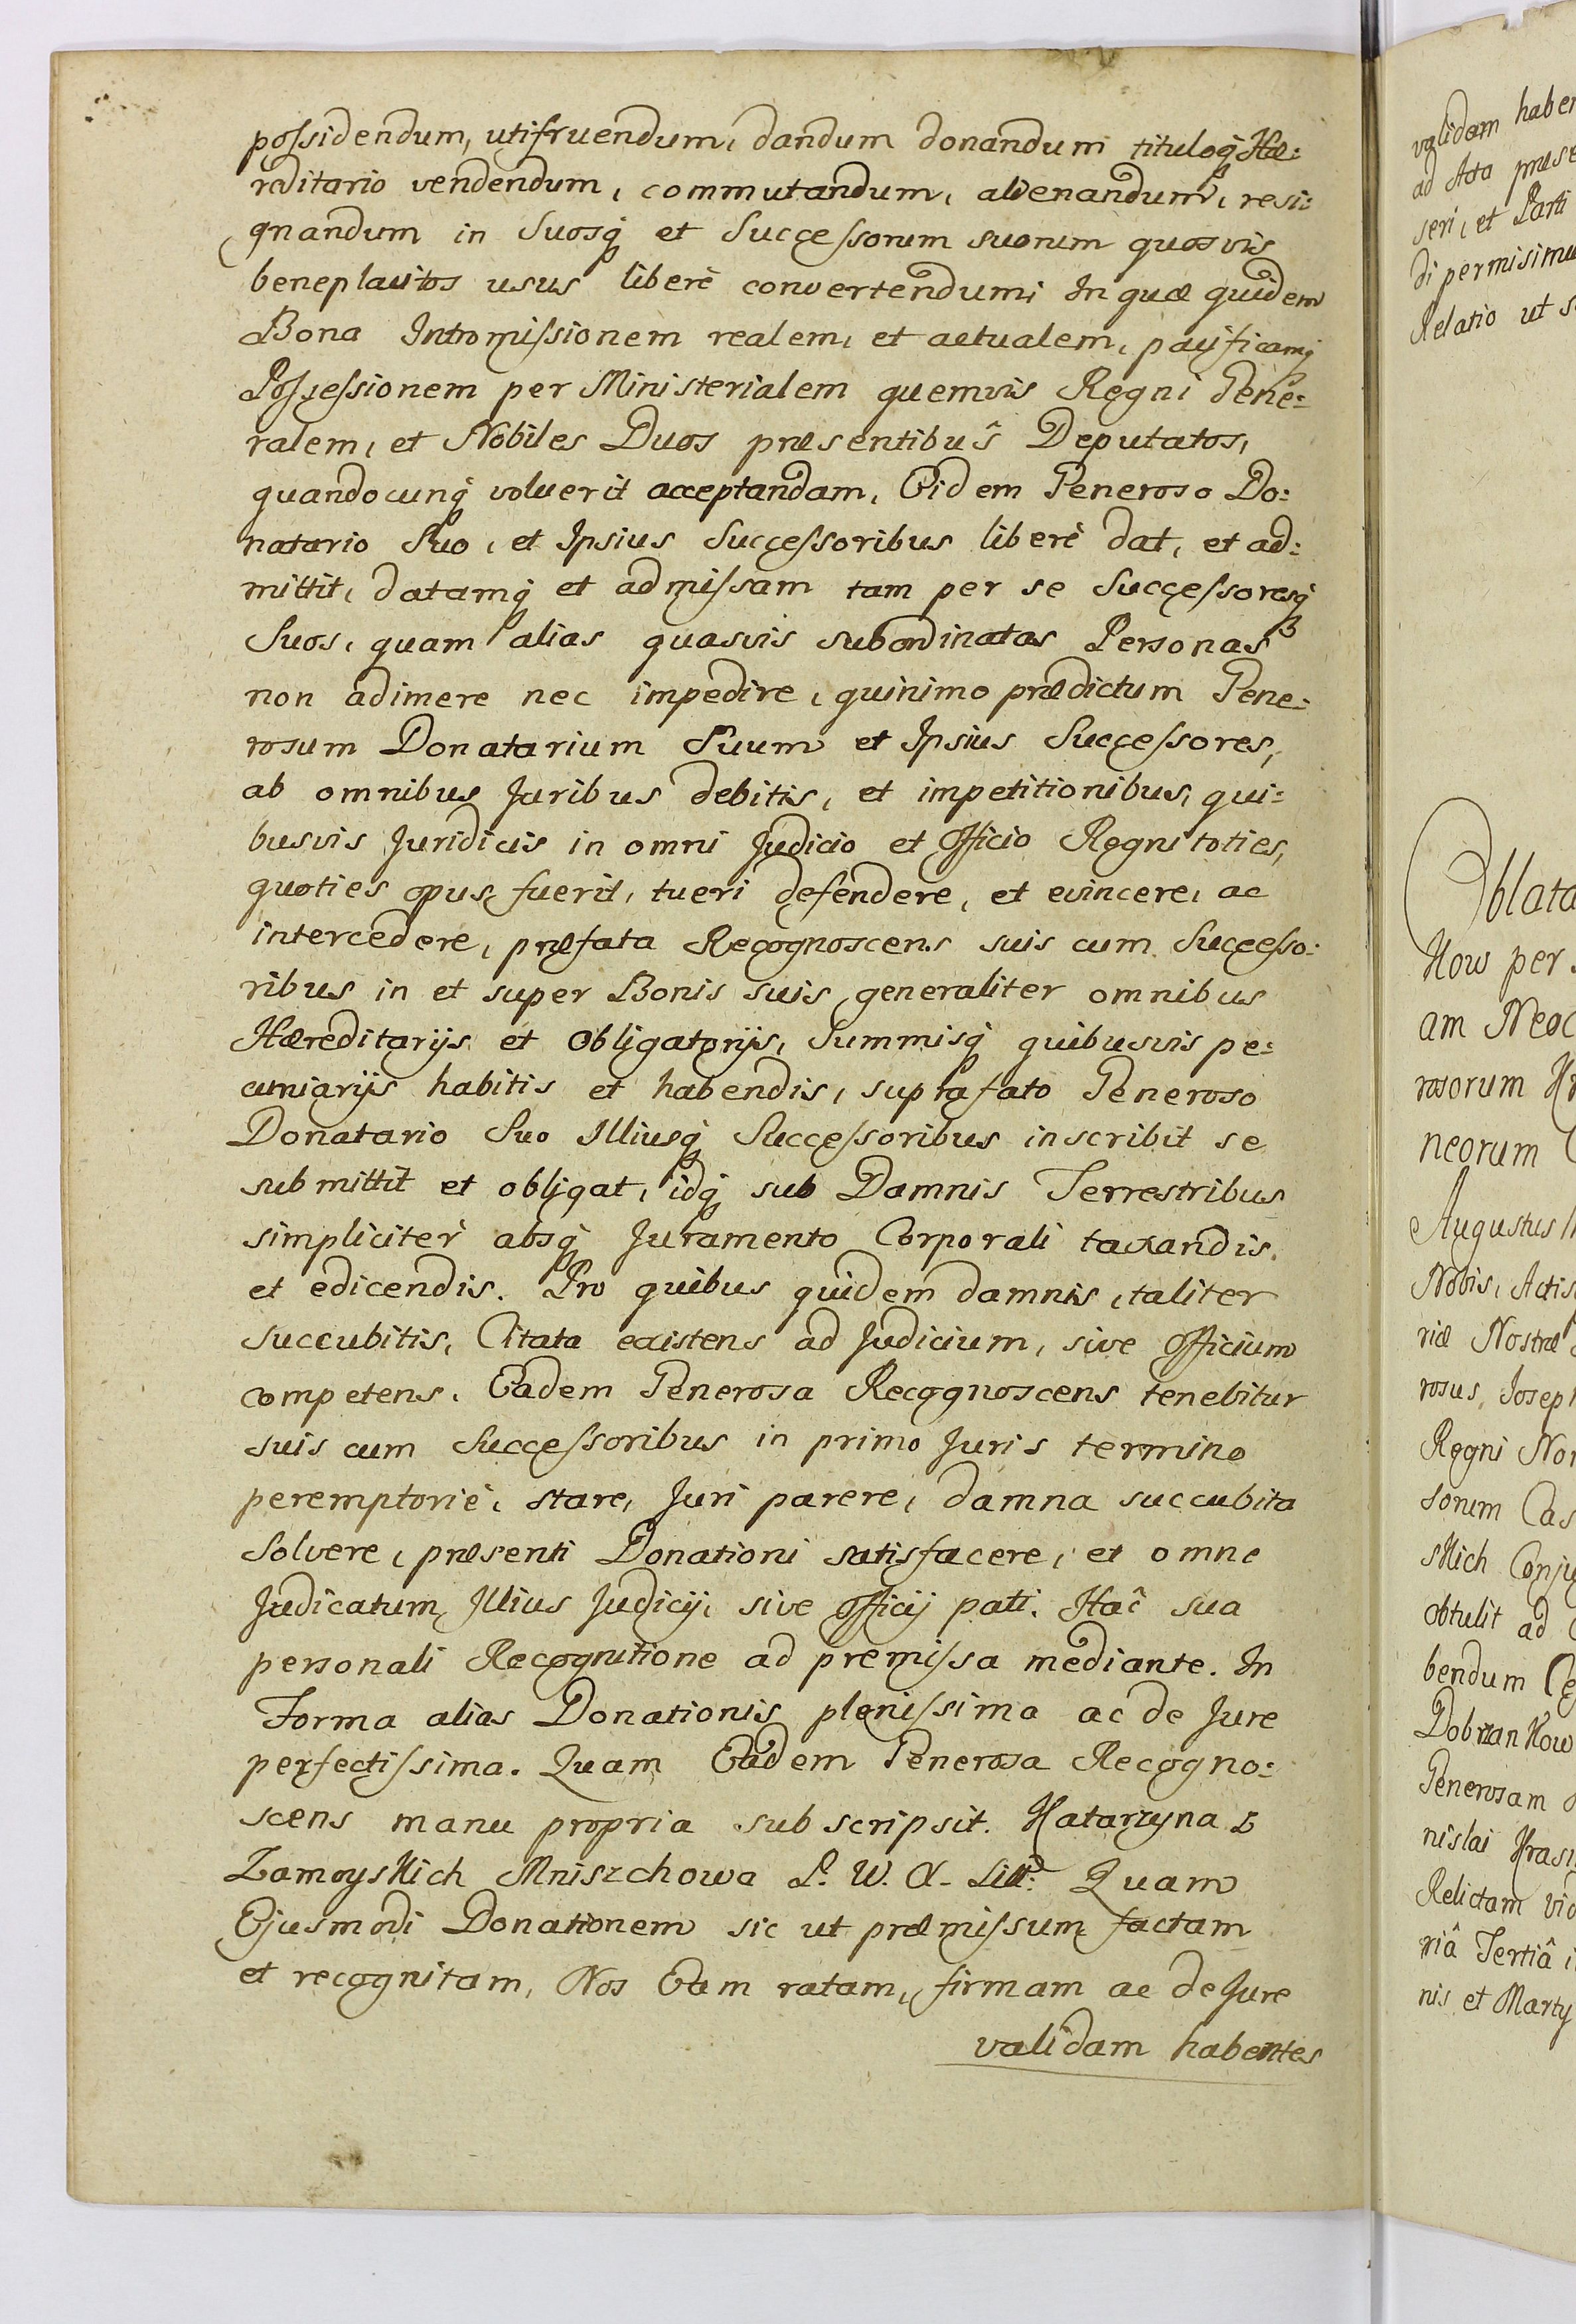 possidendum, utifruendum, dandum donandum tituloq; Hæ:
reditario vendendum, commutandum, alienandum, resi:
gnandum in Suosq; et Successorum suorum quosvis
beneplacitos usus liberè convertendum; In quæ quidem
Bona Intromissionem realem, et actualem, pacificamq;
Possessionem per Ministerialem quemvis Regni Gene:
ralem, et Nobiles Duos præsentibus Deputatos,
quandocunq; voluerit acceptandam, Eidem Generoso Do:
natario Suo, et Ipsius Successoribus liberè dat, et ad:
mittit, datamq; et admissam tam per se Successoresq;
Suos, quam alias quasvis subordinatas Personas
non adimere nec impedire, quinimo prædictum Gene:
rosum Donatarium Suum et Ipsius Successores,
ab omnibus Juribus debitis, et impetitionibus, qui:
busvis Juridicis in omni Judicio et Officio Regni toties,
quoties opus fuerit, tueri defendere, et evincere, ac
intercedere, præfata Recognoscens suis cum Successo:
ribus in et super Bonis suis generaliter omnibus
Hæreditarijs et Obligatorijs, Summisq; quibusvis pe:
cuniarijs habitis et habendis, suprafato Generoso
Donatario Suo Illiusq; Successoribus inscribit se
submittit et obligat, idq; sub Damnis Terrestribus
simpliciter absq; Juramento Corporali taxandis
et edicendis. Pro quibus quidem damnis, taliter
succubitis, Citata existens ad Judicium, sive Officium
competens, Eadem Generosa Recognoscens tenebitur
suis cum Successoribus in primo Juris termino
peremptoriè, stare, Juri parere, damna succubita
Solvere, præsenti Donationi satisfacere, et omne
Judicatum Illius Judicij, sive Officij pati. Hac sua
personali Recognitione ad premissa mediante. In
Forma alias Donationis plenissima ac de Jure
perfectissima. Quam Eadem Generosa Recogno:
scens manu propria subscripsit. Katarzyna z
Zamoyskich Mniszchowa P. W. X. Litt: Quam
Ejusmodi Donationem sic ut præmissum factam
et recognitam, Nos Eam ratam, firmam ac de Jure
validam habentes
validam haben
ad Acta præse
seri, et Parti
di permisimu
Relatio ut s
Oblata
kow per
am Neoc
rosorum Kr
neorum
Augustus
Nobis, Actis
riæ Nostræ
rosus Joseph
Regni Nor
sorum Cas
skich Conju
obtulit ad
bendum
Dobrzankow
Generosam
nislai Krasi
Relictam vid
riâ Tertiâ i
nis et Marty